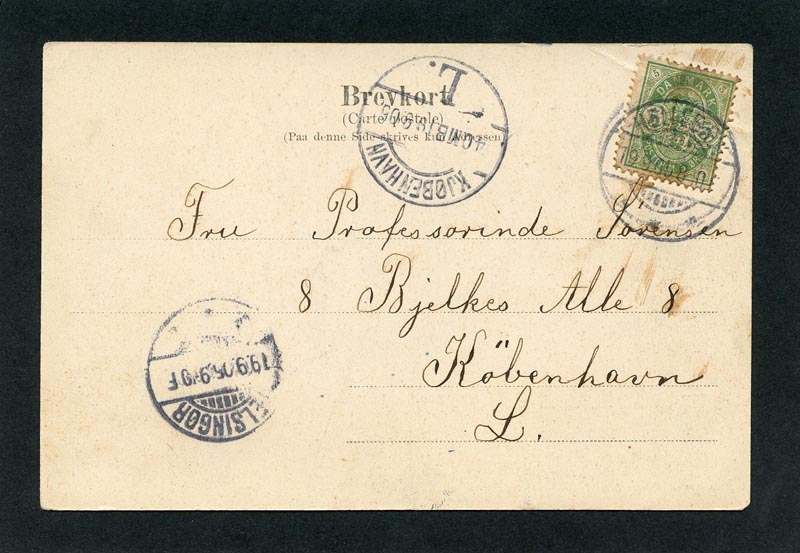 Brevkort
(Carte postale)
(Paa denne Side skrives kun Adressen)
DANMARK
5
5
KJØBENHAVN
4 OMB
L.
Fru Professorinde Sørensen
8 Bjelkes Alle 8
København
L.
HELSINGØR
19.9.05.9-10F